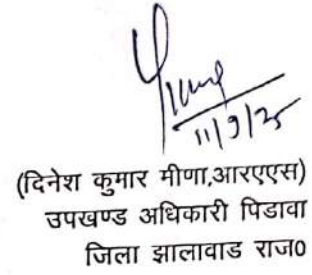 11/9/25
(दिनेश कुमार मीणा,आरएएस)
उपखण्ड अधिकारी पिडावा
जिला झालावाड राज0